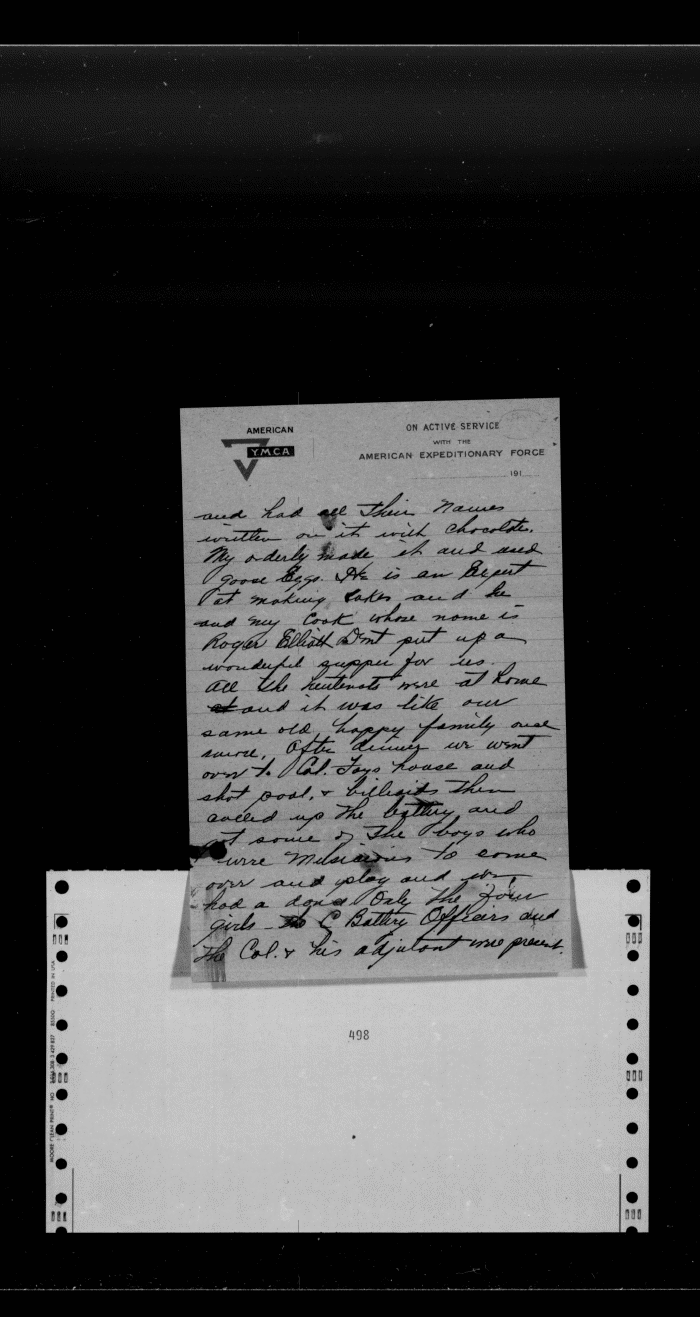 AMERICAN
Y.M.C.A
ON ACTIVE SERVICE
WITH THE
AMERICAN EXPEDITIONARY FORCE
191
and had all their names
written on it with chocolate.
My orderly made it and used
goose Eggs. He is an Expert
at making cakes and he
and my Cook whose name is
Roger Elliott Dent put up a
wonderful supper for us.
All the leutenats were at home
and it was like our
same old happy family once
more. After dinner we went
over to Col. Fays house and
shot pool, & billiards then
called up the battery and
got some of the boys who
were Musicians to come
over and play and we
had a dance Only the four
girls C Battery Officers and
the Col. & his adjutant were present.
498
PRINTED IN USA
MOORE CLEAN PRINT